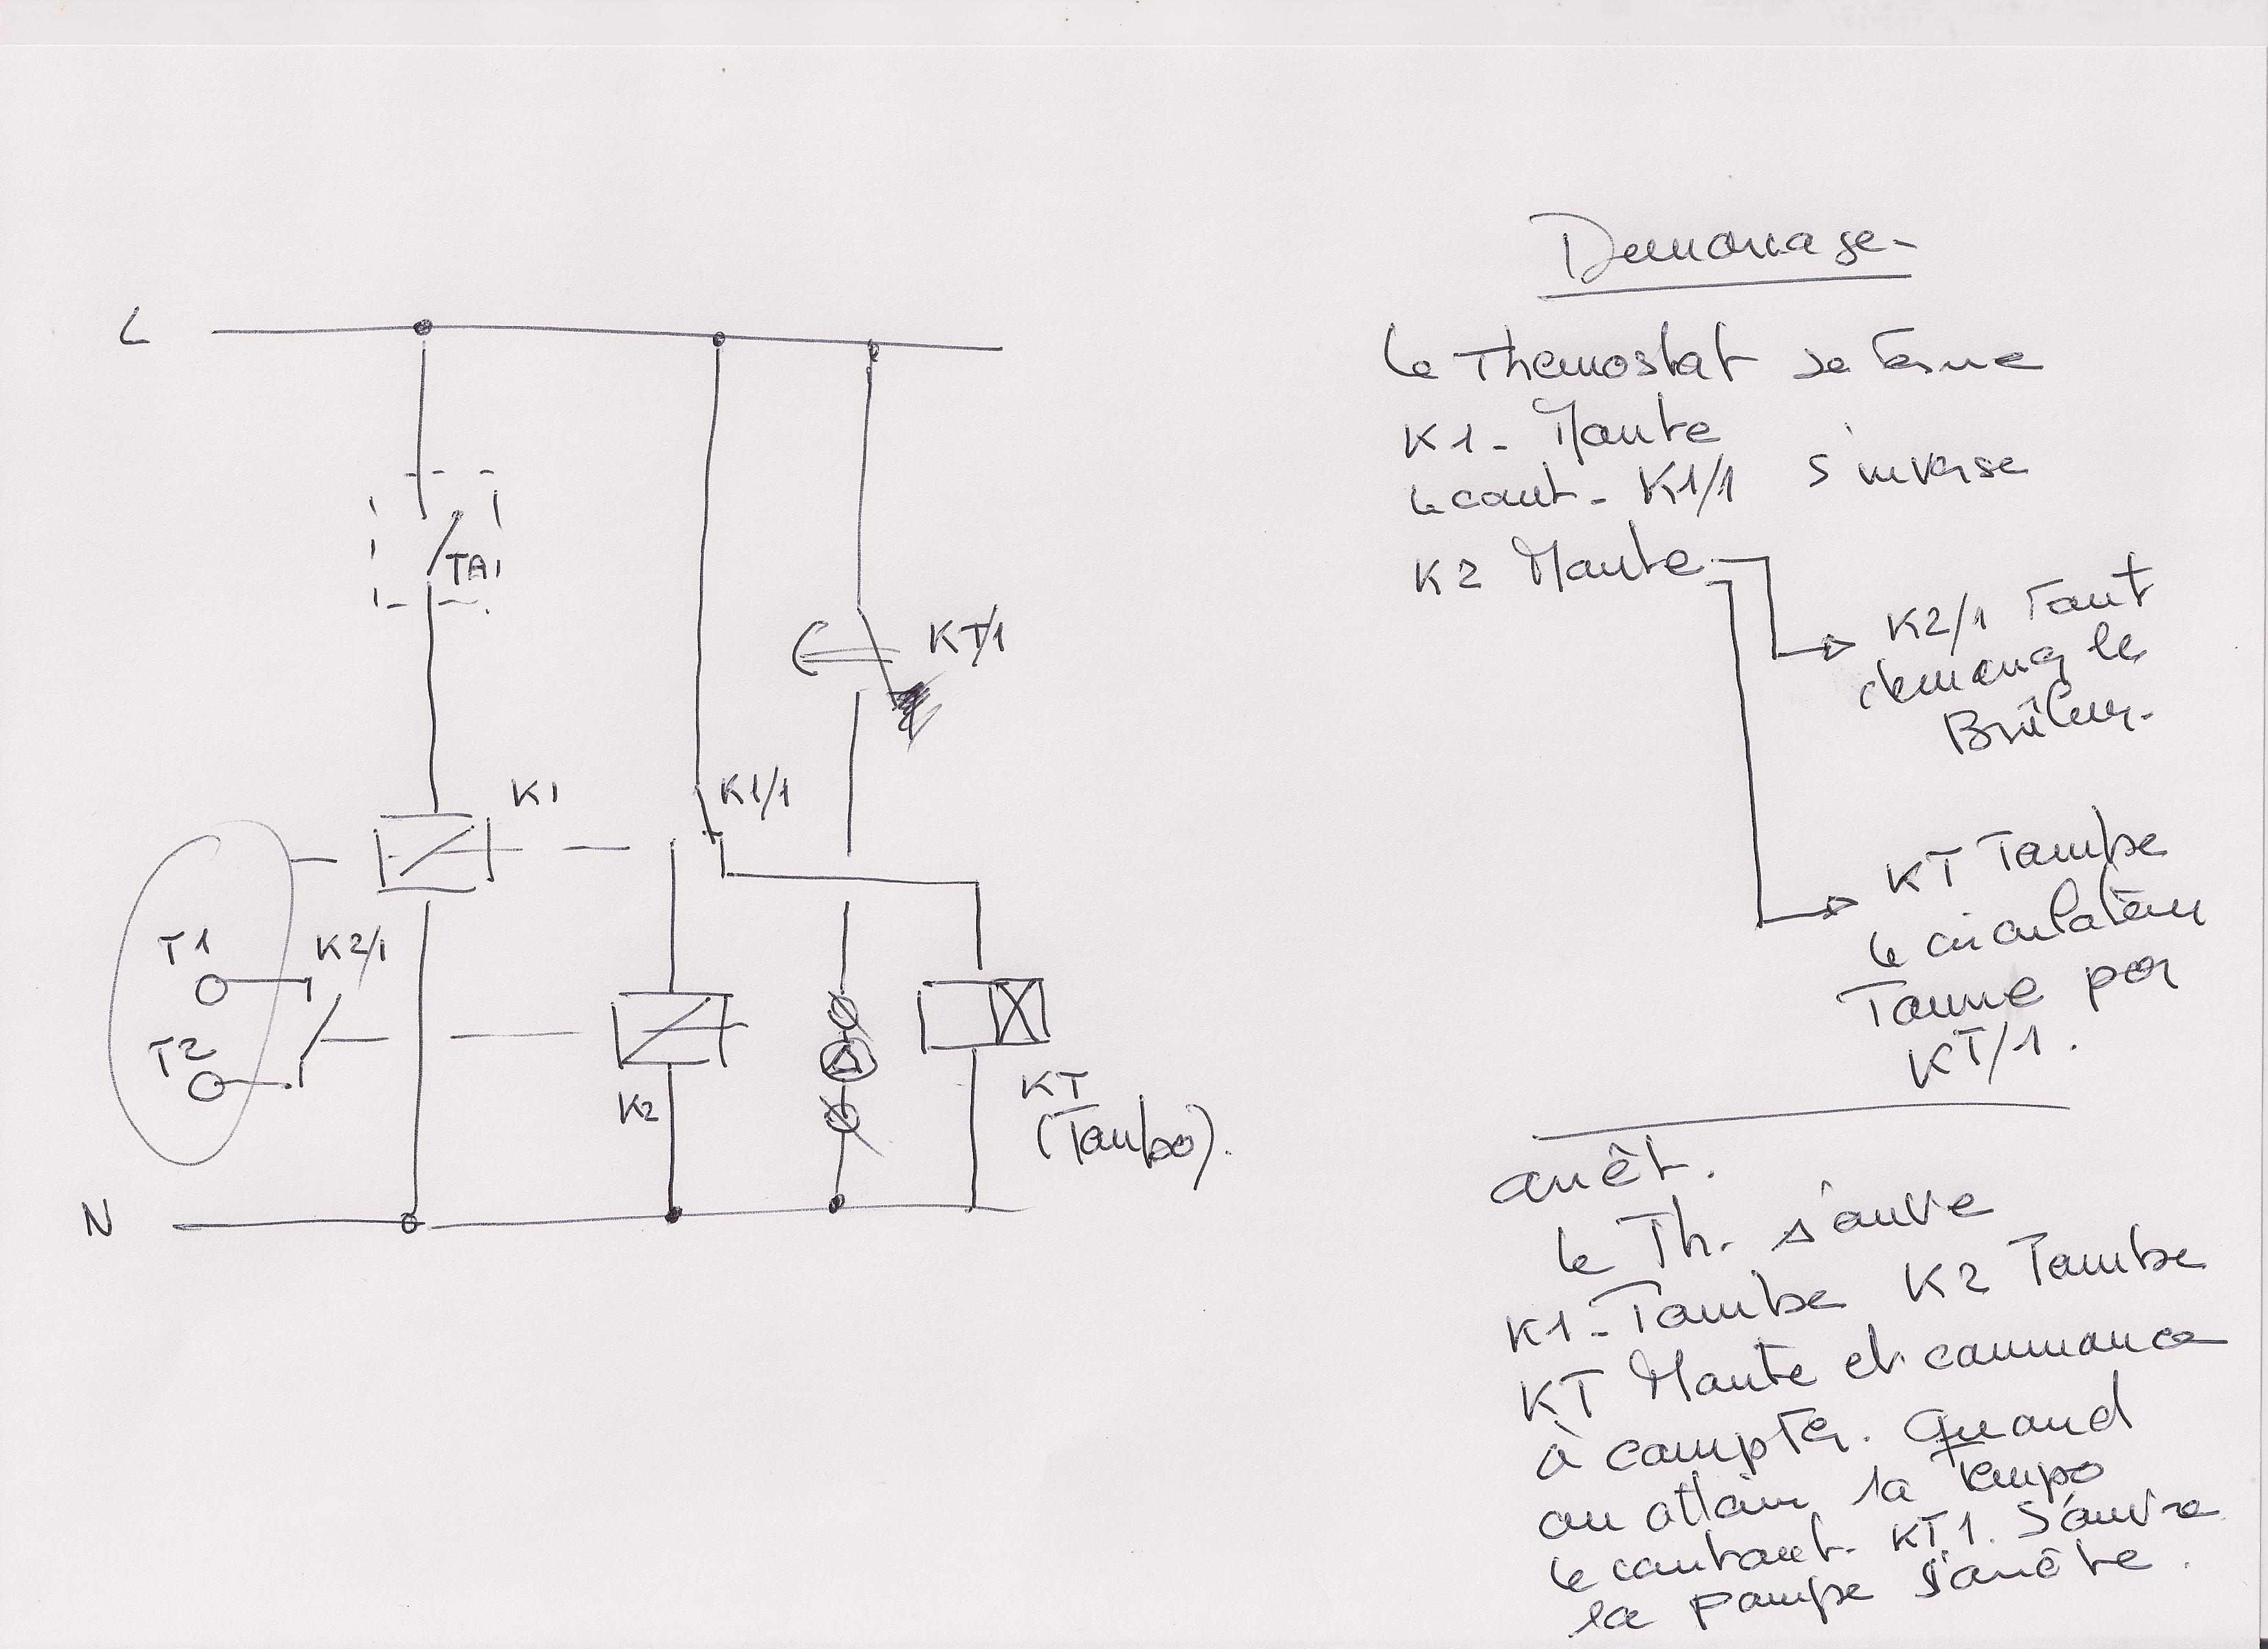 L
TA
KT/1
K1
K1/1
T1
K2/1
T2
K2
KT
(Tempo).
N
Démarrage
Le Thermostat se ferme
K1 - Monte
Le cont - K1/1 s'inverse
K2 Monte
K2/1 Fait
démarrer le
Brûleur.
KT Tombe
Le circulateur
Tourne par
KT/1.
arrêt.
Le Th. s'ouvre
K1 - Tombe K2 Tombe
KT Monte et commence
à compter. Quand
on atteint la tempo
Le contact - KT1. S'ouvre
la pompe s'arrête.